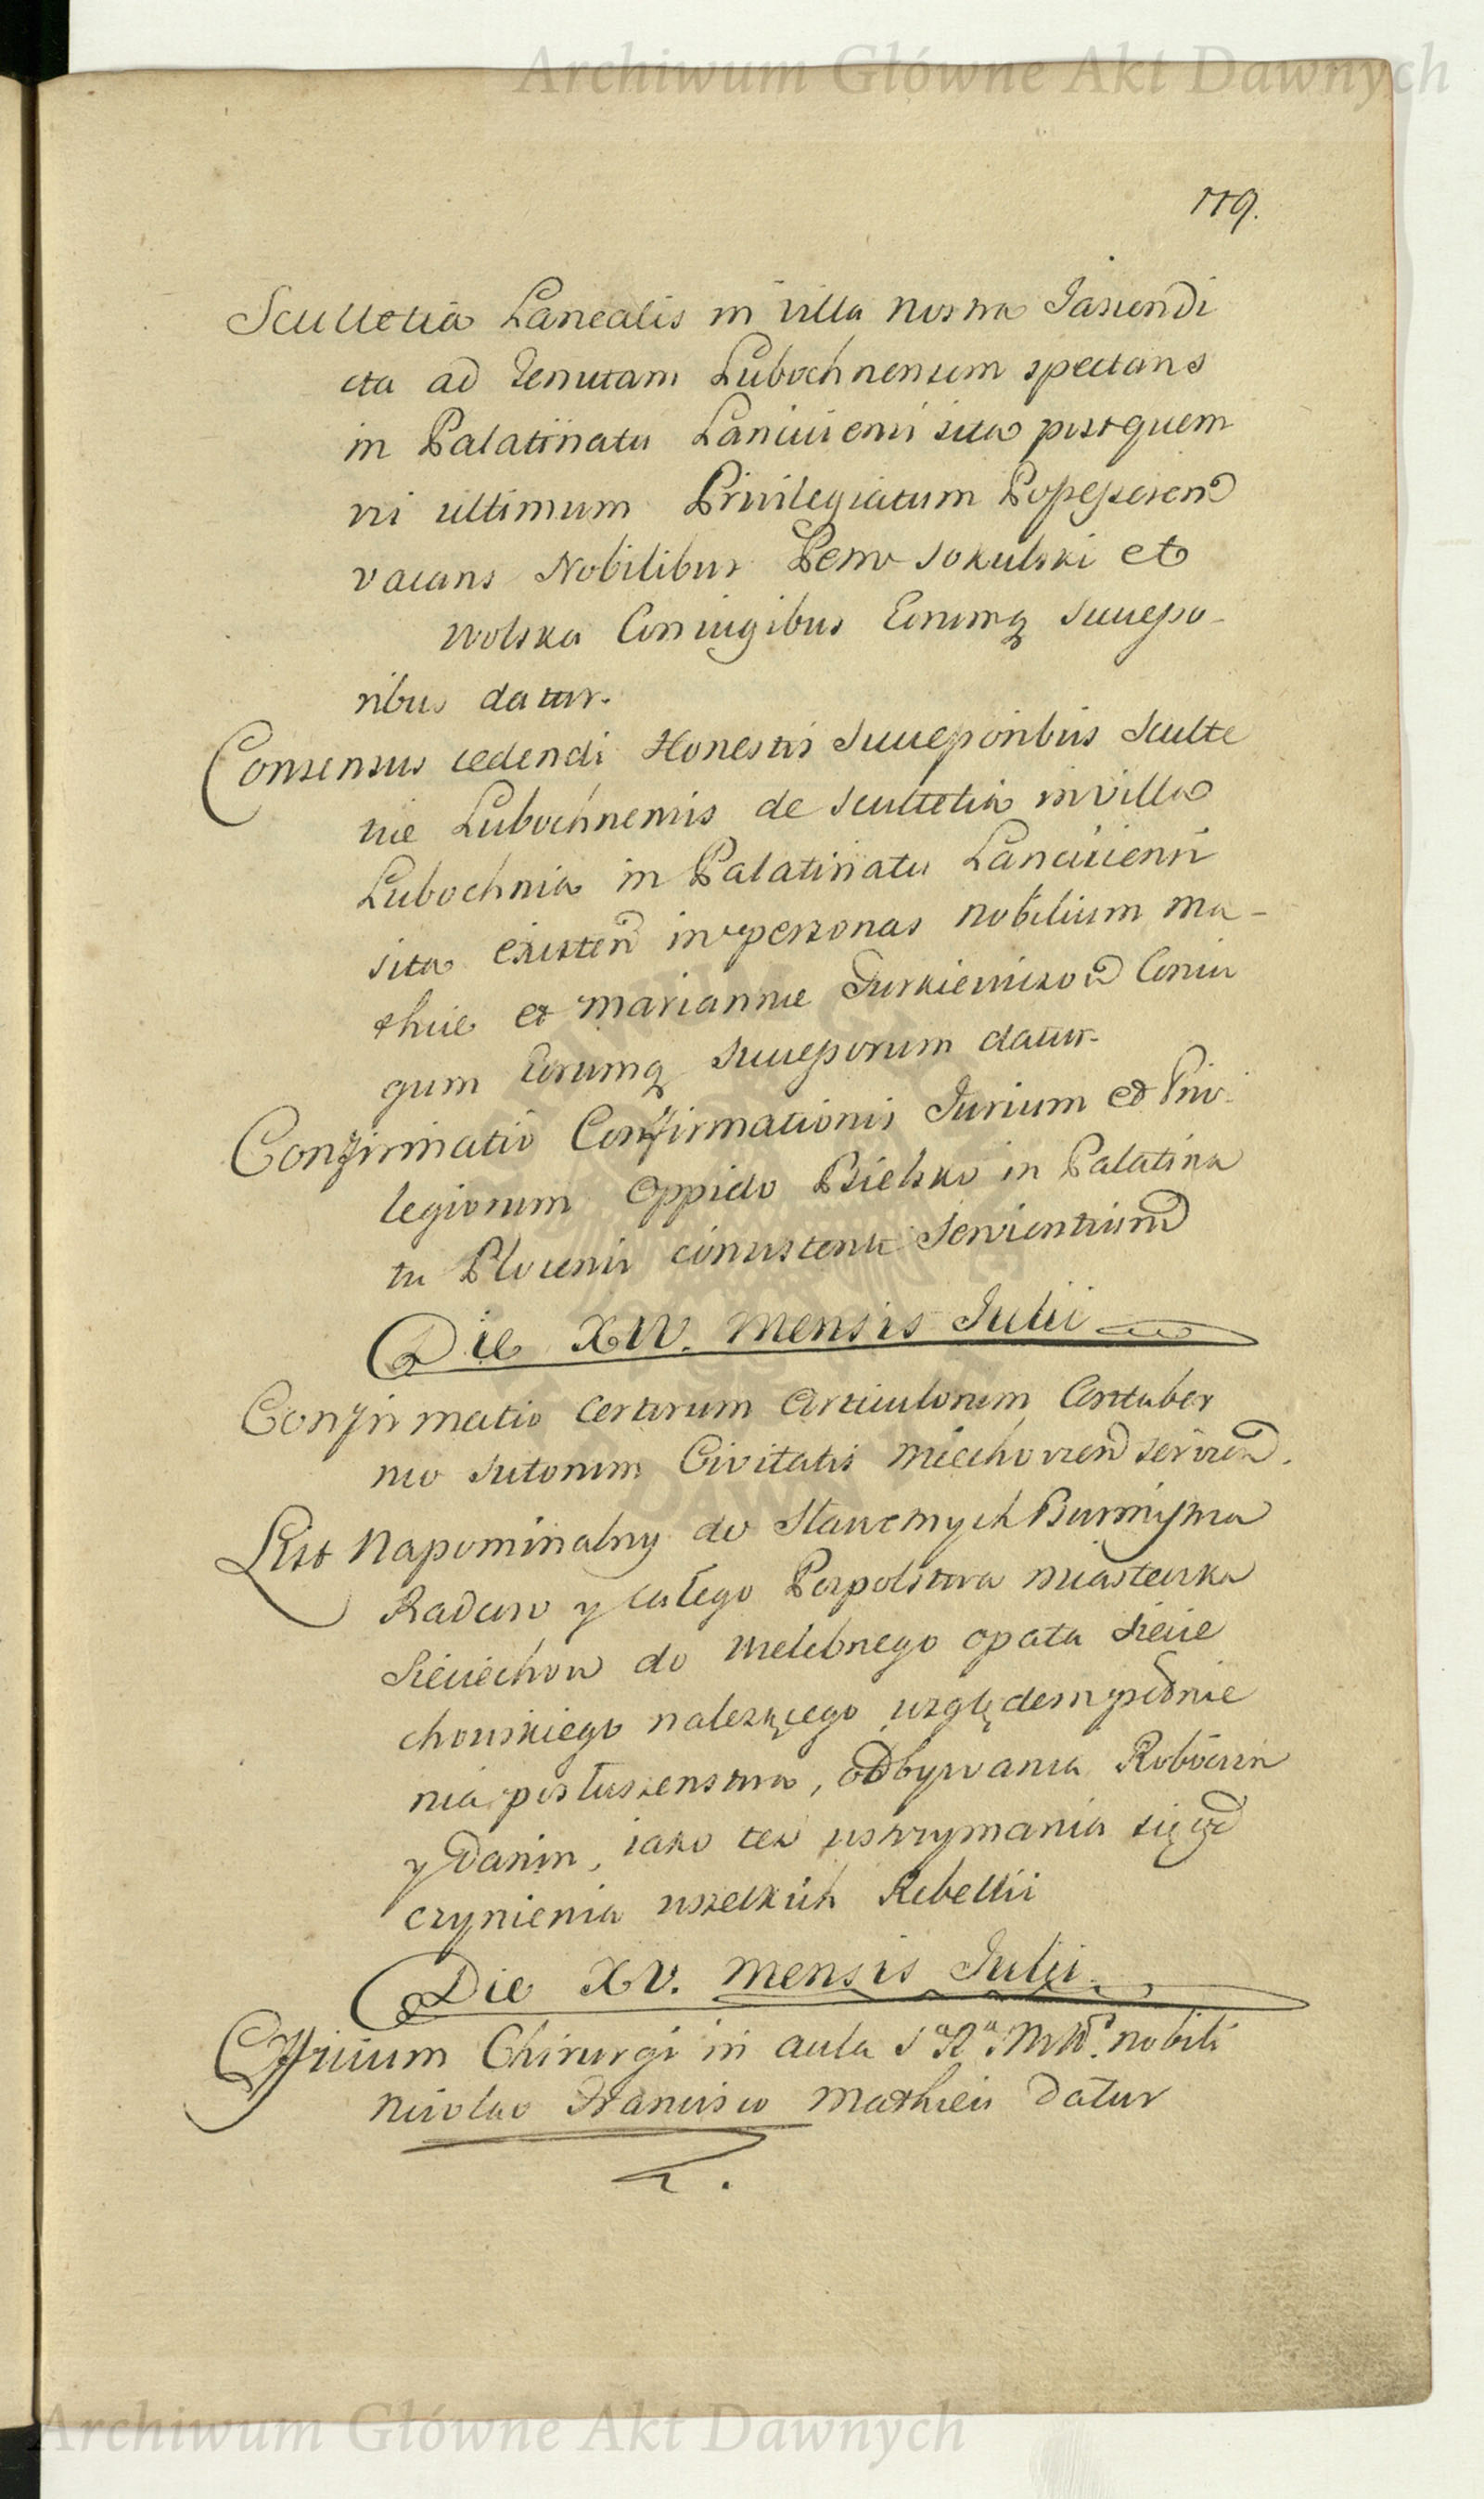 Archiwum Główne Akt Dawnych
119.
Scultetia Lanealis in villa nostra Jasien di
cta ad Tenutam Lubochnensem spectans
in Palatinatu Lanciciensi sita post quem
vis ultimum Privilegiatum Possessorem
vacans Nobilibus Petro Sokulski et
Wolska Coniugibus Eorumq Successo-
ribus datur.
Consensus cedendi Honestis Successoribus Sculte
tiæ Lubochnensis de Scultetia in villa
Lubochnia in Palatinatu Lanciciensi
sita existen in personas Nobilium Ma-
thiæ et Mariannæ Turkiewiczow Coniu
gum Eorumq Successorum datur.
Confirmatio Confirmationis Jurium et Privi
legiorum Oppido Bielsko in Palatina
tu Plocensi consistenti Servientium
Die XIV. Mensis Julii
Confirmatio certorum Articulorum Contuber
nio Sutorum Civitatis Miechovien servien.
List Napominalny do Sławetnych Burmistrza
Radcow y całego Pospolstwa miasteczka
Sieciechow do Wielebnego Opata Siecie
chowskiego należącego względem pełnie
nia posłuszenstwa, odbywania Robocizn
y Danin, iako też wstrzymania się od
czynienia wszelkich Rebellii
Die XV. Mensis Julii
Officium Chirurgi in aula S R Mtis nobili
Nicolao Francisco Mathieu Datur
Archiwum Główne Akt Dawnych